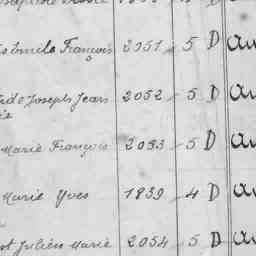 Emile François 2051 5 D Au
Joseph Jean 2052 5 D Au
Marie François 2053 5 D Au
Marie Yves 1839 4 D Au
Julien Marie 2054 5 D Au